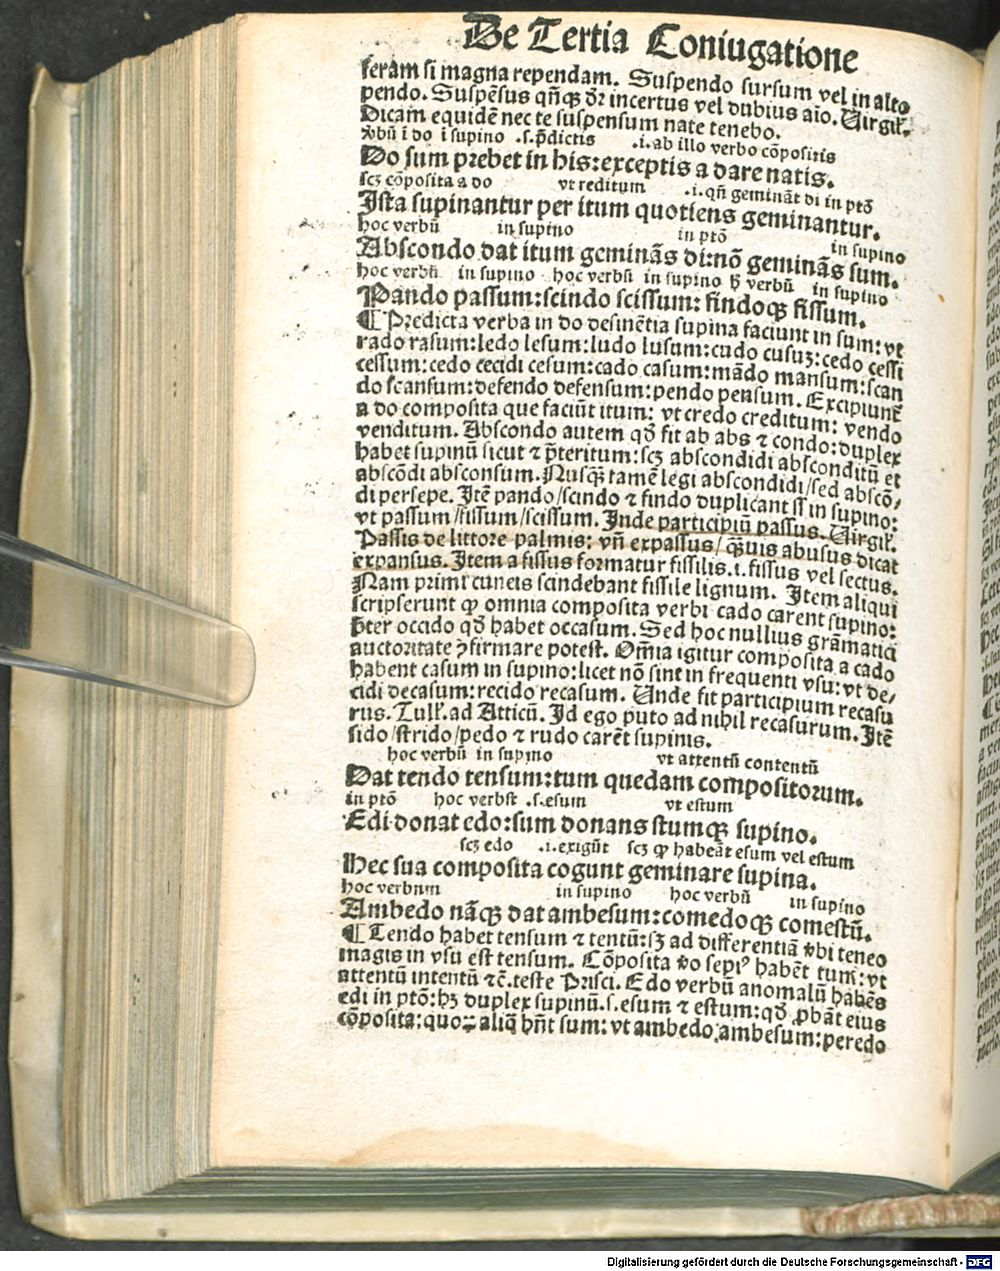 De Tertia Coniugatione
feram si magna rependam. Suspendo sursum vel in alto
pendo. Suspēsus qñqꝫ dr̄ incertus vel dubius aīo. Uirgiƚ.
Dicam equidē nec te suspensum nate tenebo.
v̄bū ī do ī supino .s. p̄dictis .i. ab illo verbo cōpositis
Do sum prebet in his: exceptis a dare natis.
scꝫ cōposita a do vt reditum .i. qñ gemināt di in ptō
Ista supinantur per itum quotiens geminantur.
hoc verbū in supino in ptō in supino
Abscondo dat itum geminās di: nō geminās sum.
hoc verbū in supino hoc verbū in supino ħ verbū in supino
Pando passum: scindo scissum: findoqꝫ fissum.
¶ Predicta verba in do desinētia supina faciunt in sum: vt
rado rasum: ledo lesum: ludo lusum: cudo cusuꝫ: cedo cessi
cessum: cedo cecidi cesum: cado casum: mādo mansum: scan
do scansum: defendo defensum: pendo pensum. Excipiunt̄
a do composita que faciūt itum: vt credo creditum: vendo
venditum. Abscondo autem qd̄ fit ab abs ⁊ condo: duplex
habet supinū sicut ⁊ p̄teritum: scꝫ abscondidi absconditū et
abscōdi absconsum. Nusqꝫ̄ tamē legi abscondidi/ sed abscō-
di persepe. Itē pando/ scindo ⁊ findo duplicant ss in supino:
vt passum/ fissum/ scissum. Inde participiū passus. Uirgiƚ.
Passis de littore palmis: vñ expassus/ qꝫ̄uis abusus dicat
expansus. Item a fissus formatur fissilis .i. fissus vel sectus.
Nam primi cuneis scindebant fissile lignum. Item aliqui
scripserunt ꝙ omnia composita verbi cado carent supino:
p̄ter occido qd̄ habet occasum. Sed hoc nullius grāmatici
auctoritate ꝯfirmare potest. Om̄ia igitur composita a cado
habent casum in supino: licet nō sint in frequenti vsu: vt de-
cidi decasum: recido recasum. Unde fit participium recasu
rus. Tulƚ. ad Atticū. Id ego puto ad nihil recasurum. Itē
sido/ strido/ pedo ⁊ rudo carēt supinis.
hoc verbū in supino vt attentū contentū
Dat tendo tensum: tum quedam compositorum.
in ptō hoc verbū .s. esum vt estum
Edi donat edo: sum donans stumqꝫ supino.
scꝫ edo .i. exigūt scꝫ ꝙ habeāt esum vel estum
Hec sua composita cogunt geminare supina.
hoc verbum in supino hoc verbū in supino
Ambedo nāqꝫ dat ambesum: comedoqꝫ comestū.
¶ Tendo habet tensum ⁊ tentū: sꝫ ad differentiā v̄bi teneo
magis in vsu est tensum. Cōposita v̄o sepiꝰ habēt tum: vt
attentū intentū ⁊c̄. teste Prisci. Edo verbū anomalū habēs
edi in ptō: hꝫ duplex supinū .s. esum ⁊ estum: qd̄ ꝓbāt eius
cōposita: quoꝝ aliq̄ hn̄t sum: vt ambedo ambesum: peredo
Digitalisierung gefördert durch die Deutsche Forschungsgemeinschaft - DFG